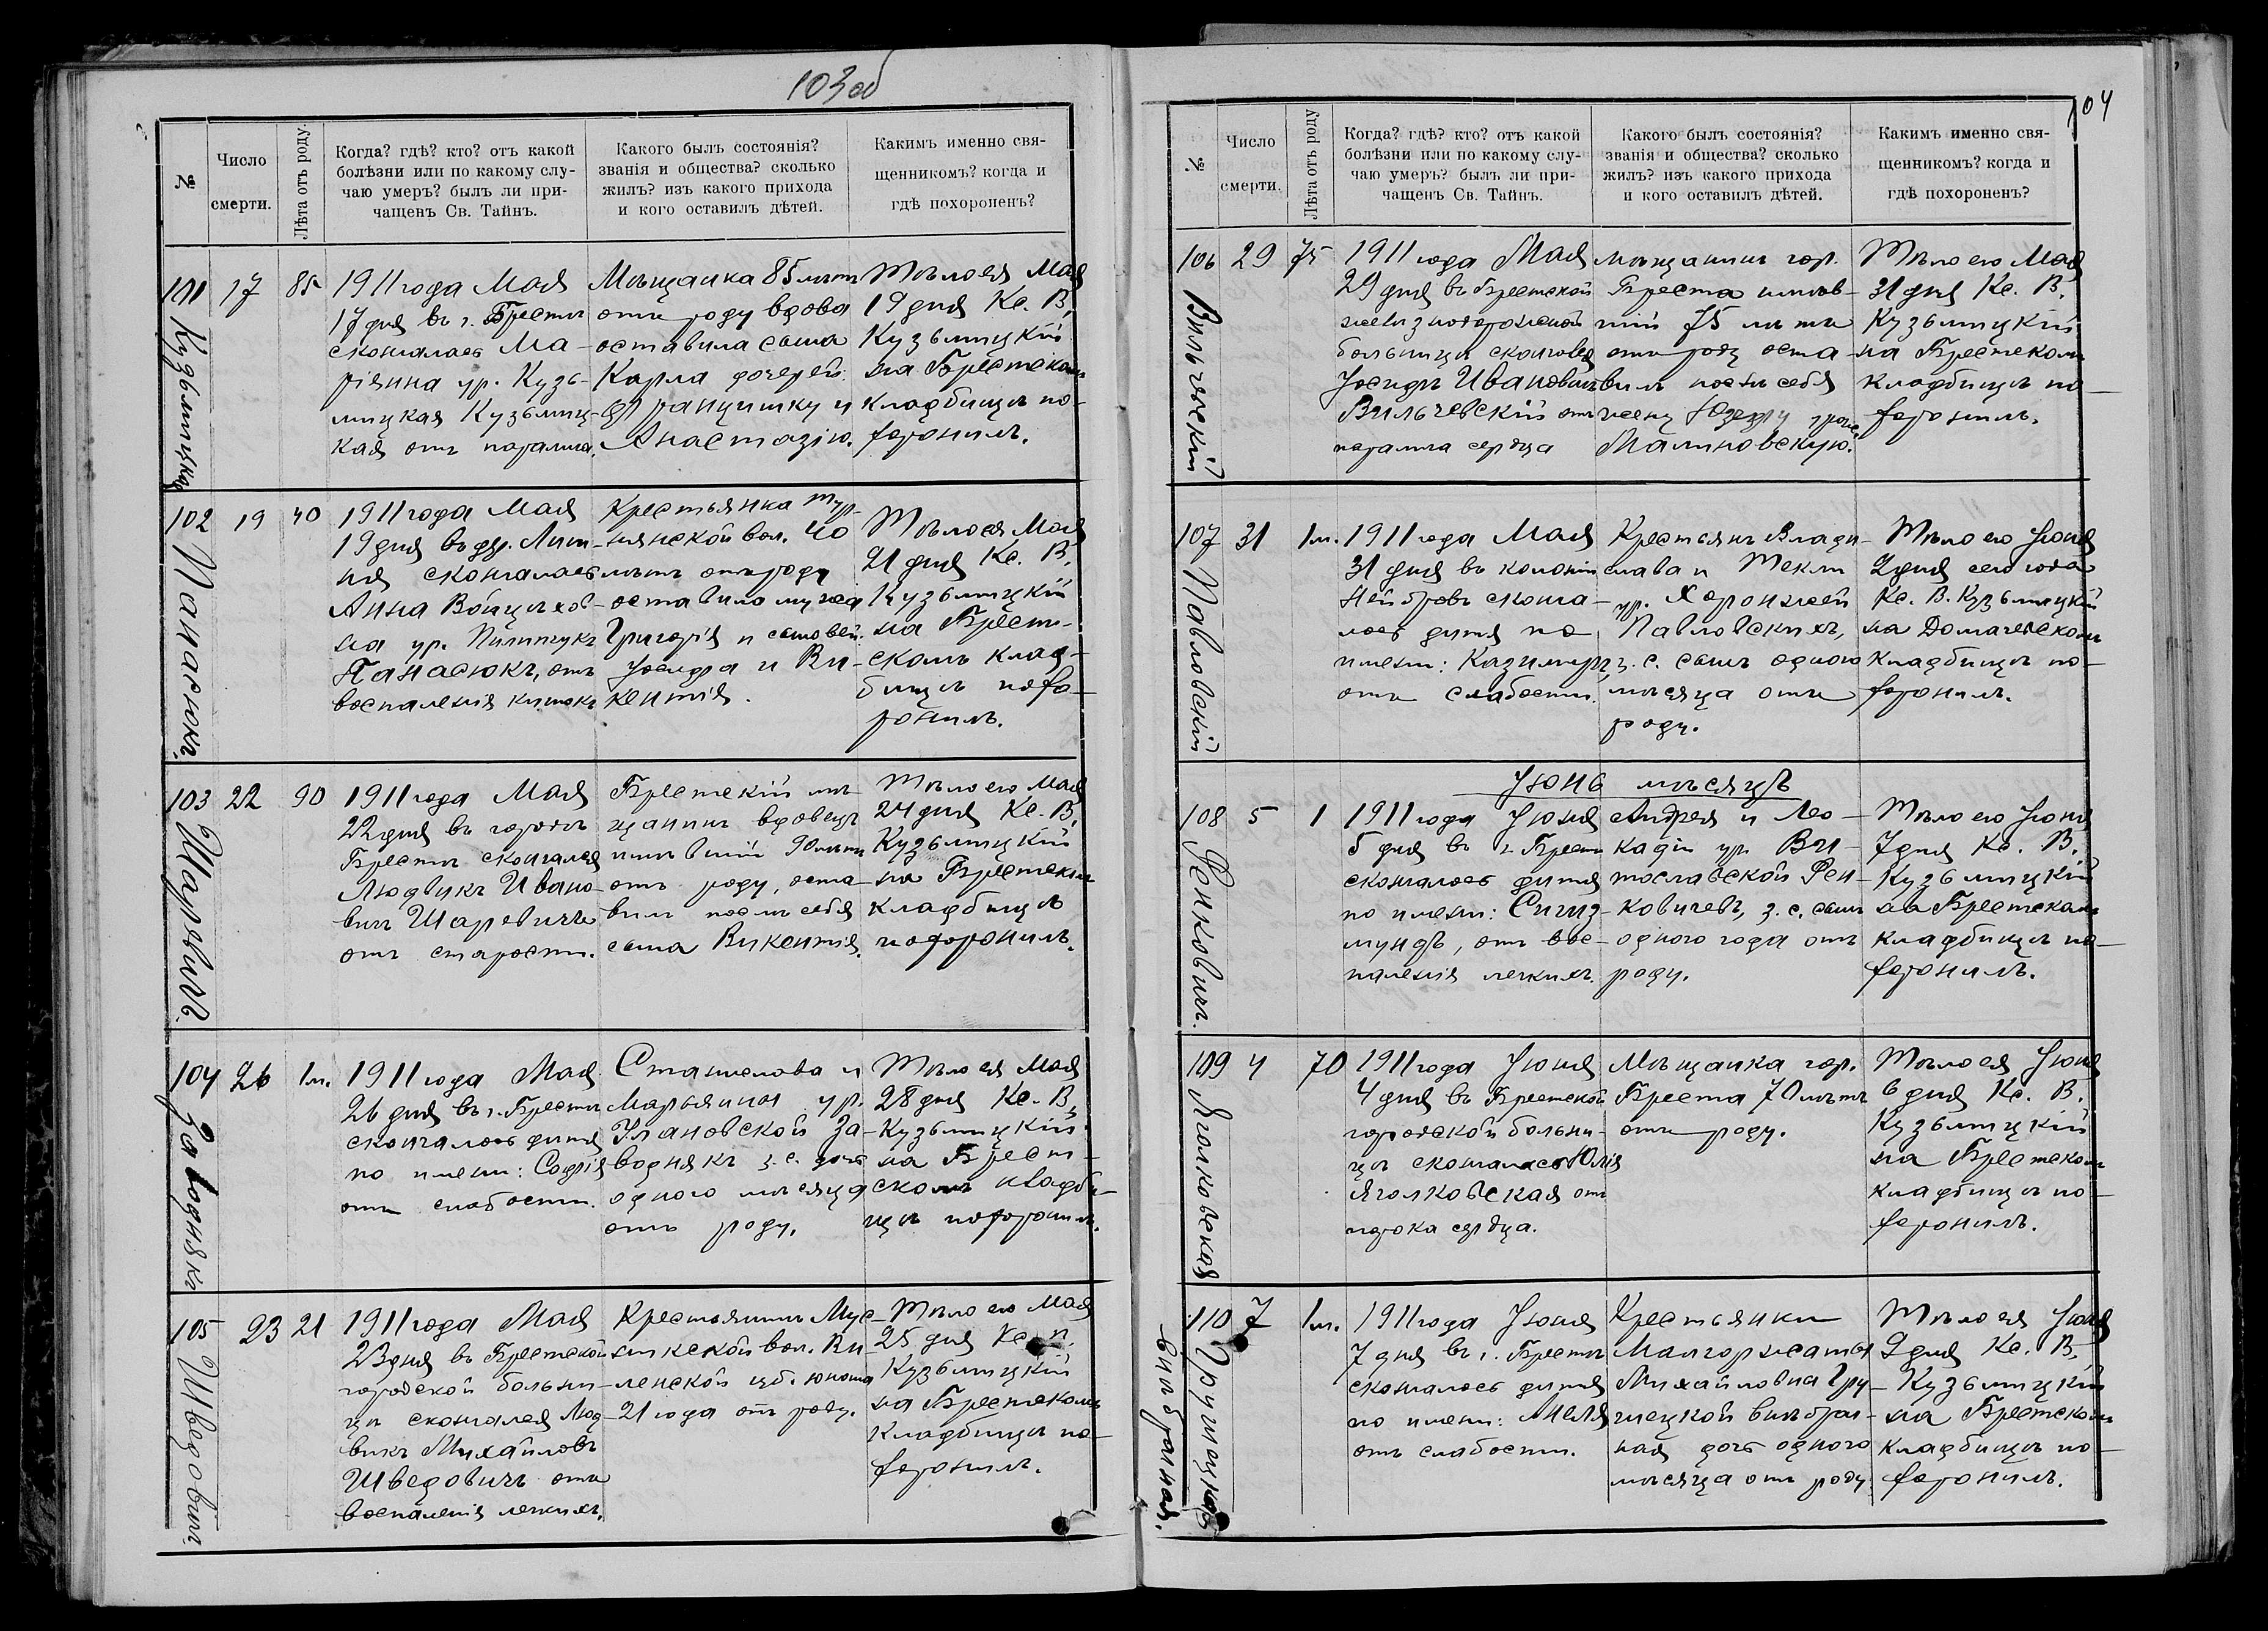 103 об
№
Число смерти.
Лѣта отъ роду.
Когда? гдѣ? кто? отъ какой
болѣзни или по какому слу-
чаю умеръ? былъ ли при-
чащенъ Св. Тайнъ.
Какого былъ состоянія?
званія и общества? сколько
жилъ? изъ какого прихода
и кого оставилъ дѣтей.
Какимъ именно свя-
щенникомъ? когда и
гдѣ похороненъ?
101
17
85
1911 года Мая
17 дня въ г. Брестѣ
скончалась Ма-
ріянна ур. Кузь-
мицкая Кузьмиц-
кая отъ паралича.
Мѣщанка 85 лѣтъ
отъ роду вдова
оставила сына
Карла дочерей
Францишку и
Анастазію.
Тѣло ея Мая
19 дня Кс. В.
Кузьмицкій
на Брестскомъ
кладбищѣ по-
хоронилъ.
102
Панасюкъ.
19
40
1911 года Мая
19 дня въ др. Лит-
ня скончалась
Анна Войцѣхов-
на ур. Пилипчукъ
Панасюкъ, отъ
воспаленія кишокъ
Крестьянка Тур-
нянской вол. 40
лѣтъ отъ роду
оставила мужа
Григорія и сыновей
Іосифа и Ви-
кентія.
Тѣло ея Мая
21 дня Кс. В.
Кузьмицкій
на Брест-
скомъ клад-
бищѣ похо-
ронилъ.
103
Шаревичъ.
22
90
1911 года Мая
22 дня въ городѣ
Брестѣ скончался
Людвикъ Ивано-
вичъ Шаревичъ
отъ старости.
Брестскій мѣ-
щанинъ вдовецъ
имѣвшій 90 лѣтъ
отъ роду, оста-
вилъ послѣ себя
сына Викентія.
Тѣло его Мая
24 дня Кс. В.
Кузьмицкій
на Брестскомъ
кладбищѣ
похоронилъ.
104
Заводнякъ
26
1 м.
1911 года Мая
26 дня въ г. Брестѣ
скончалось дитя
по имени: Софія
отъ слабости.
Станислава и
Марьянны ур.
Улановской За-
воднякъ з. с. дочь
одного мѣсяца
отъ роду.
Тѣло ея Мая
28 дня Кс. В.
Кузьмицкій
на Брест-
скомъ кладби-
щѣ похоронилъ.
105
Шведовичъ.
23
21
1911 года Мая
23 дня въ Брестской
городской больни-
цѣ скончался Люд-
викъ Михайловъ
Шведовичъ отъ
воспаленія легкихъ.
Крестьянинъ
вол. Ви-
ленской губ. юноша
21 года отъ роду.
Тѣло его Мая
25 дня Кс.
Кузьмицкій
на Брестскомъ
кладбищѣ по-
хоронилъ.
104
№
Число смерти.
Лѣта отъ роду
Когда? гдѣ? кто? отъ какой
болѣзни или по какому слу-
чаю умеръ? былъ ли при-
чащенъ Св. Тайнъ.
Какого былъ состоянія?
званія и общества? сколько
жилъ? изъ какого прихода
и кого оставилъ дѣтей.
Какимъ именно свя-
щенникомъ? когда и
гдѣ похороненъ?
106
Вильчевскій
29
75
1911 года Мая
29 дня въ Брестской
желѣзнодорожной
больницѣ скончался
Іосифъ Ивановичъ
Вильчевскій отъ
паралича сердца
мѣщанинъ гор.
Бреста имѣв-
шій 75 лѣтъ
отъ роду оста-
вилъ послѣ себя
жену Юзефу урож.
Малиновскую.
Тѣло его Мая
31 дня Кс. В.
Кузьмицкій
на Брестскомъ
кладбищѣ по-
хоронилъ.
107
Павловскій
31
1 м.
1911 года Мая
31 дня въ колоніи
Нейбровъ сконча-
лось дитя по
имени: Казимиръ,
отъ слабости.
Крестьянъ Влади-
слава и Текли
ур. Хоронжей
Павловскихъ,
з. с. сынъ одного
мѣсяца отъ
роду.
Тѣло его Іюня
2 дня сего года
Кс. В. Кузьмицкій
на Домачевскомъ
кладбищѣ по-
хоронилъ.
Іюнь мѣсяцъ
108
Ренковичъ.
5
1
1911 года Іюня
5 дня въ г. Брестѣ
скончалось дитя
по имени: Сигиз-
мундъ, отъ вос-
паленія легкихъ.
Андрея и Лео-
кадіи ур. Ви-
тославской Рен-
ковичевъ, з. с. сынъ
одного года отъ
роду.
Тѣло его Іюня
7 дня Кс. В.
Кузьмицкій
на Брестскомъ
кладбищѣ по-
хоронилъ.
109
Яголковская
4
70
1911 года Іюня
4 дня въ Брестской
городской больни-
цѣ скончалась Юлія
Яголковская отъ
порока сердца.
Мѣщанка гор.
Бреста 70 лѣтъ
отъ роду.
Тѣло ея Іюня
6 дня Кс. В.
Кузьмицкій
на Брестскомъ
кладбищѣ по-
хоронилъ.
110
внѣбрачная.
7
1 м.
1911 года Іюня
7 дня въ г. Брестѣ
скончалось дитя
по имени:
отъ слабости.
Крестьянки
Малгоржаты
Михайловны Гру-
шецкой внѣбрач-
ная дочь одного
мѣсяца отъ роду.
Тѣло ея Іюня
9 дня Кс. В.
Кузьмицкій
на Брестскомъ
кладбищѣ по-
хоронилъ.